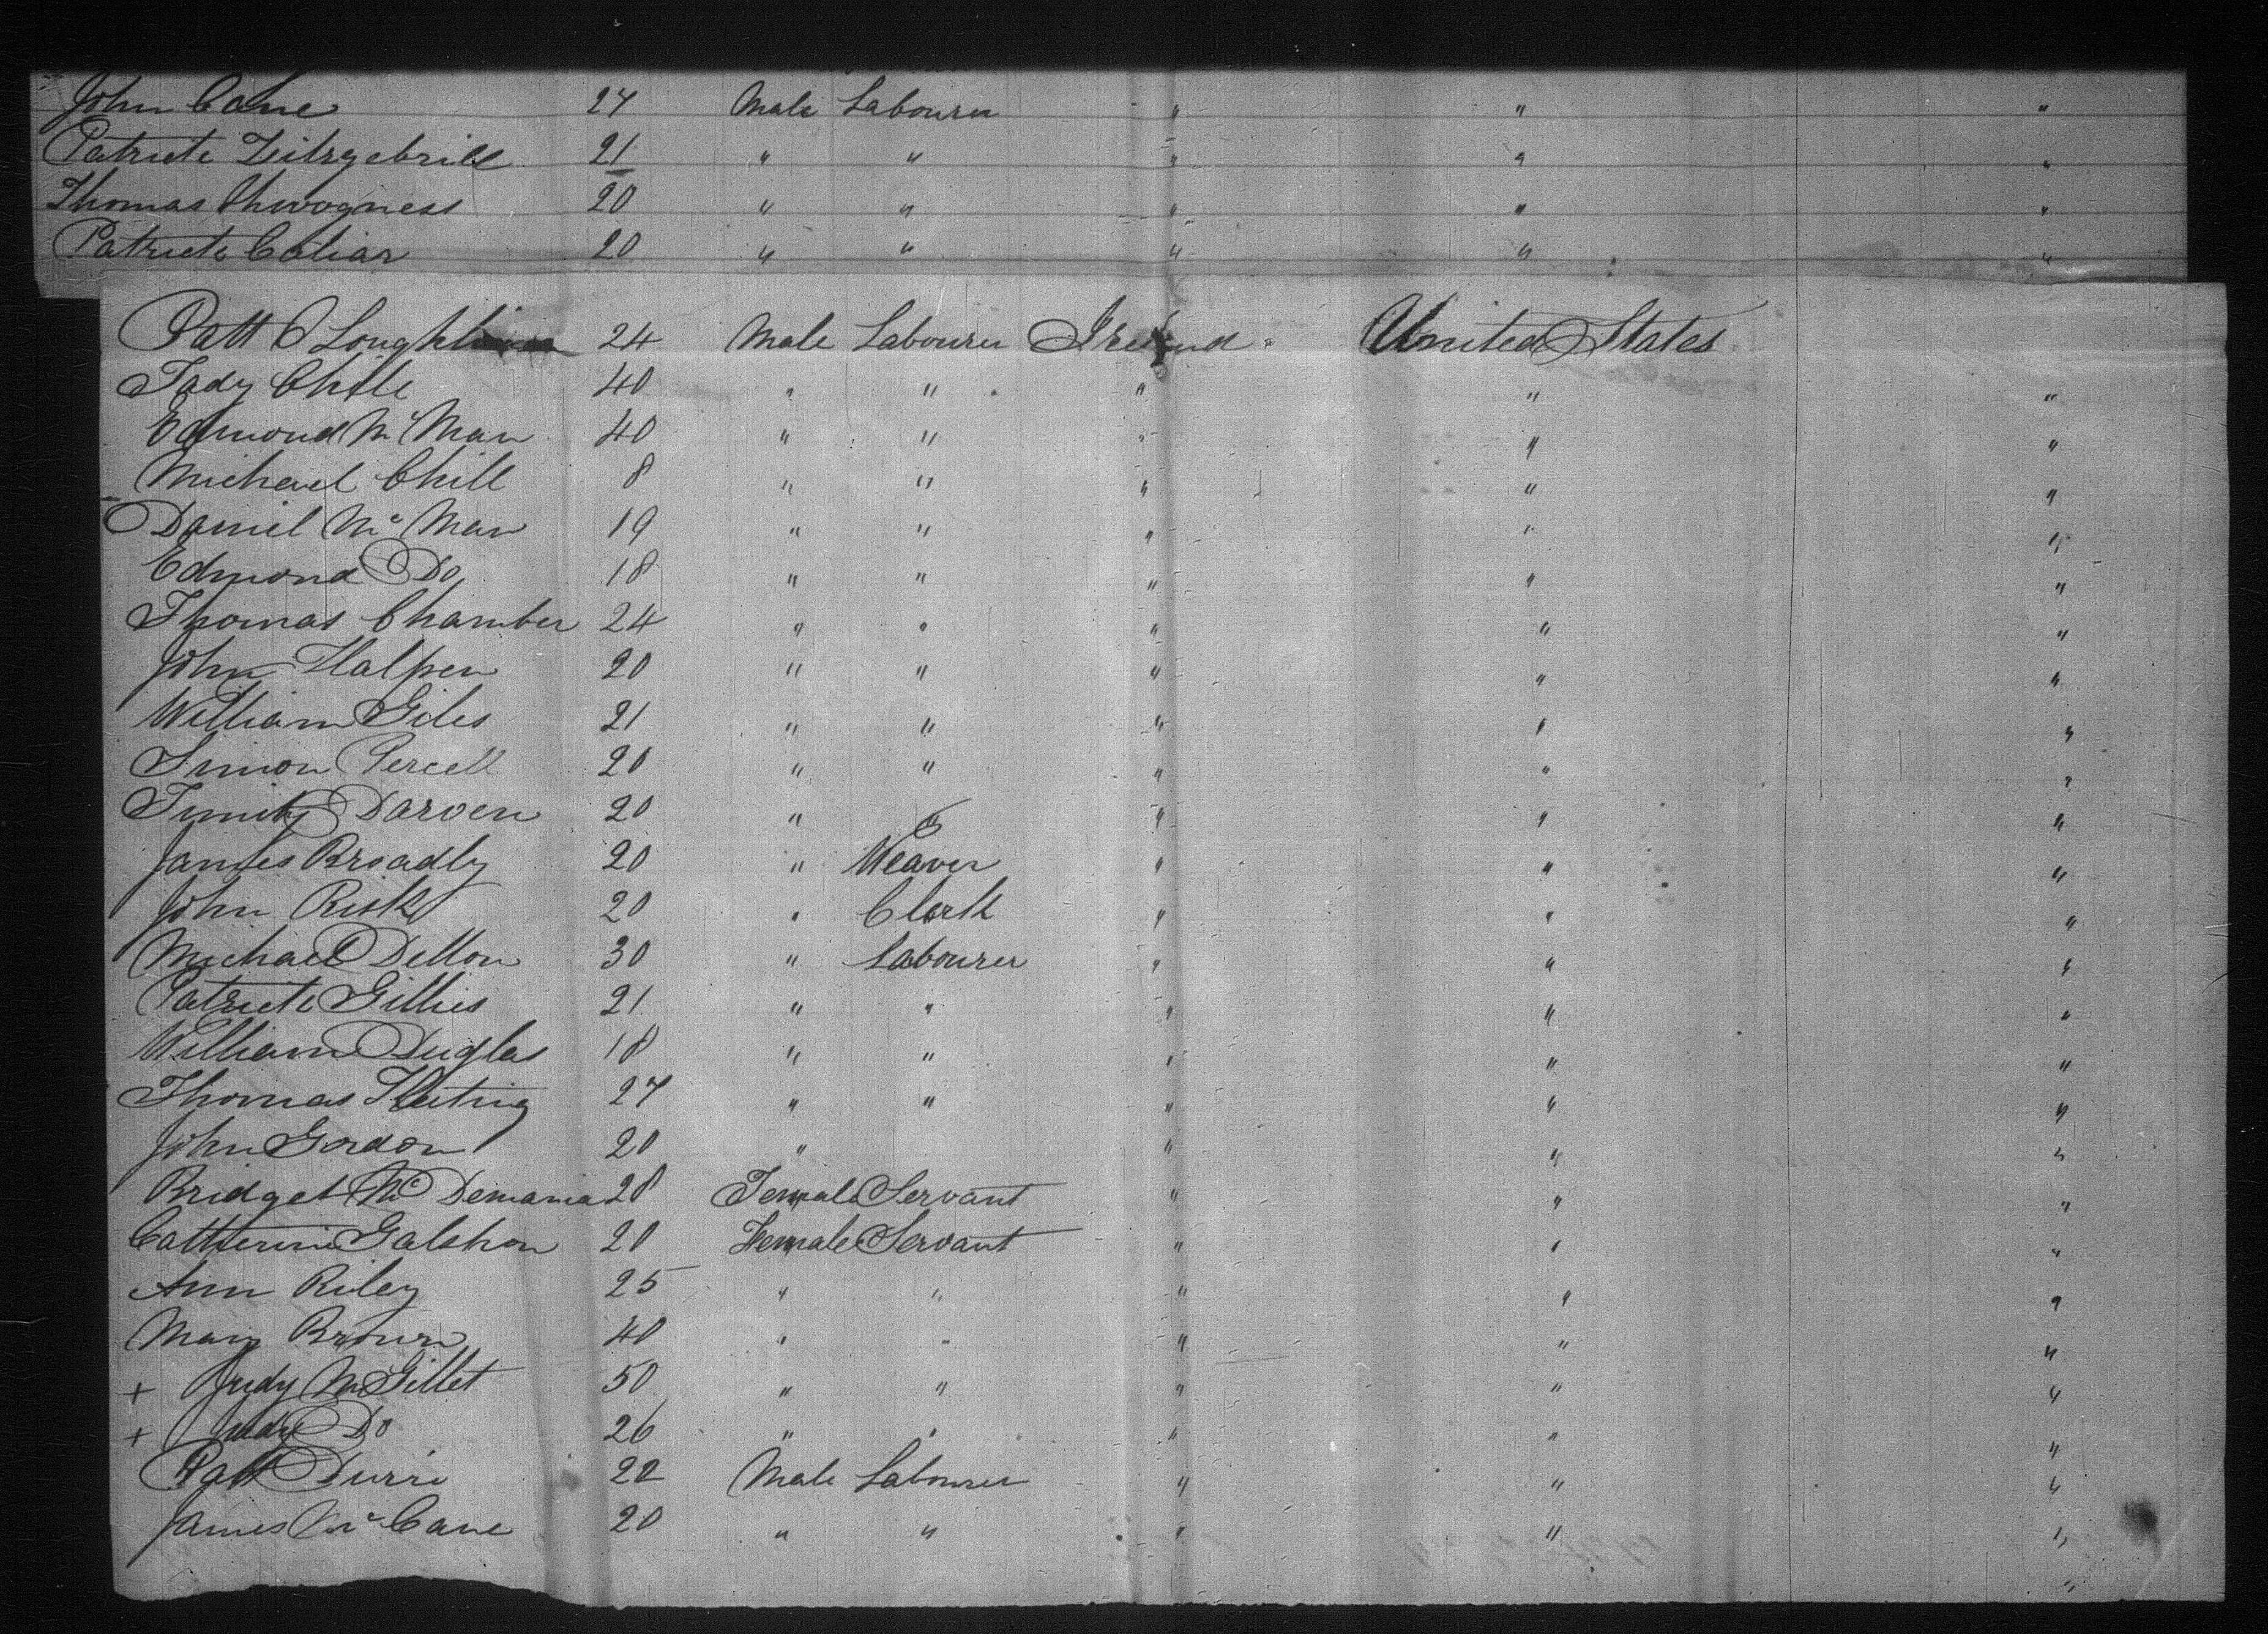 John Cane 27 Male Labourer " " "
Patrick Zeitzgebrill 21 " " " " "
Thomas 20 " " " " "
Patrick Caliar 20 " " " " "
Patt O Loughlin 24 Male Labourer Ireland United States
Tady Chill 40 " " " " "
Edmond Mc Man 40 " " " " "
Michael Chill 8 " " " " "
Daniel Mc Man 19 " " " " "
Edmond Do 18 " " " " "
Thomas Chamber 24 " " " " "
John Halpen 20 " " " " "
William Giles 21 " " " " "
Simon Percell 20 " " " " "
Timity Darven 20 " " " " "
James Broadly 20 " Weaver " " "
John Risk 20 " Clerk " " "
Michael Dillon 30 " Labourer " " "
Patrick Gillies 21 " " " " "
William Duglas 18 " " " " "
Thomas Keting 27 " " " " "
John Gordon 20 " " " "
Bridget Mc Demania 28 Female Servant " " "
Catherine Galshon 20 Female Servant " " "
Ann Riley 25 " " " " "
Mary Brown 40 " " " " "
+ Judy McGillet 50 " " " " "
+ Judy Do 26 " " " " "
Patt Durri 22 Male Labourer " " "
James Mc Cane 20 " " " " "
"